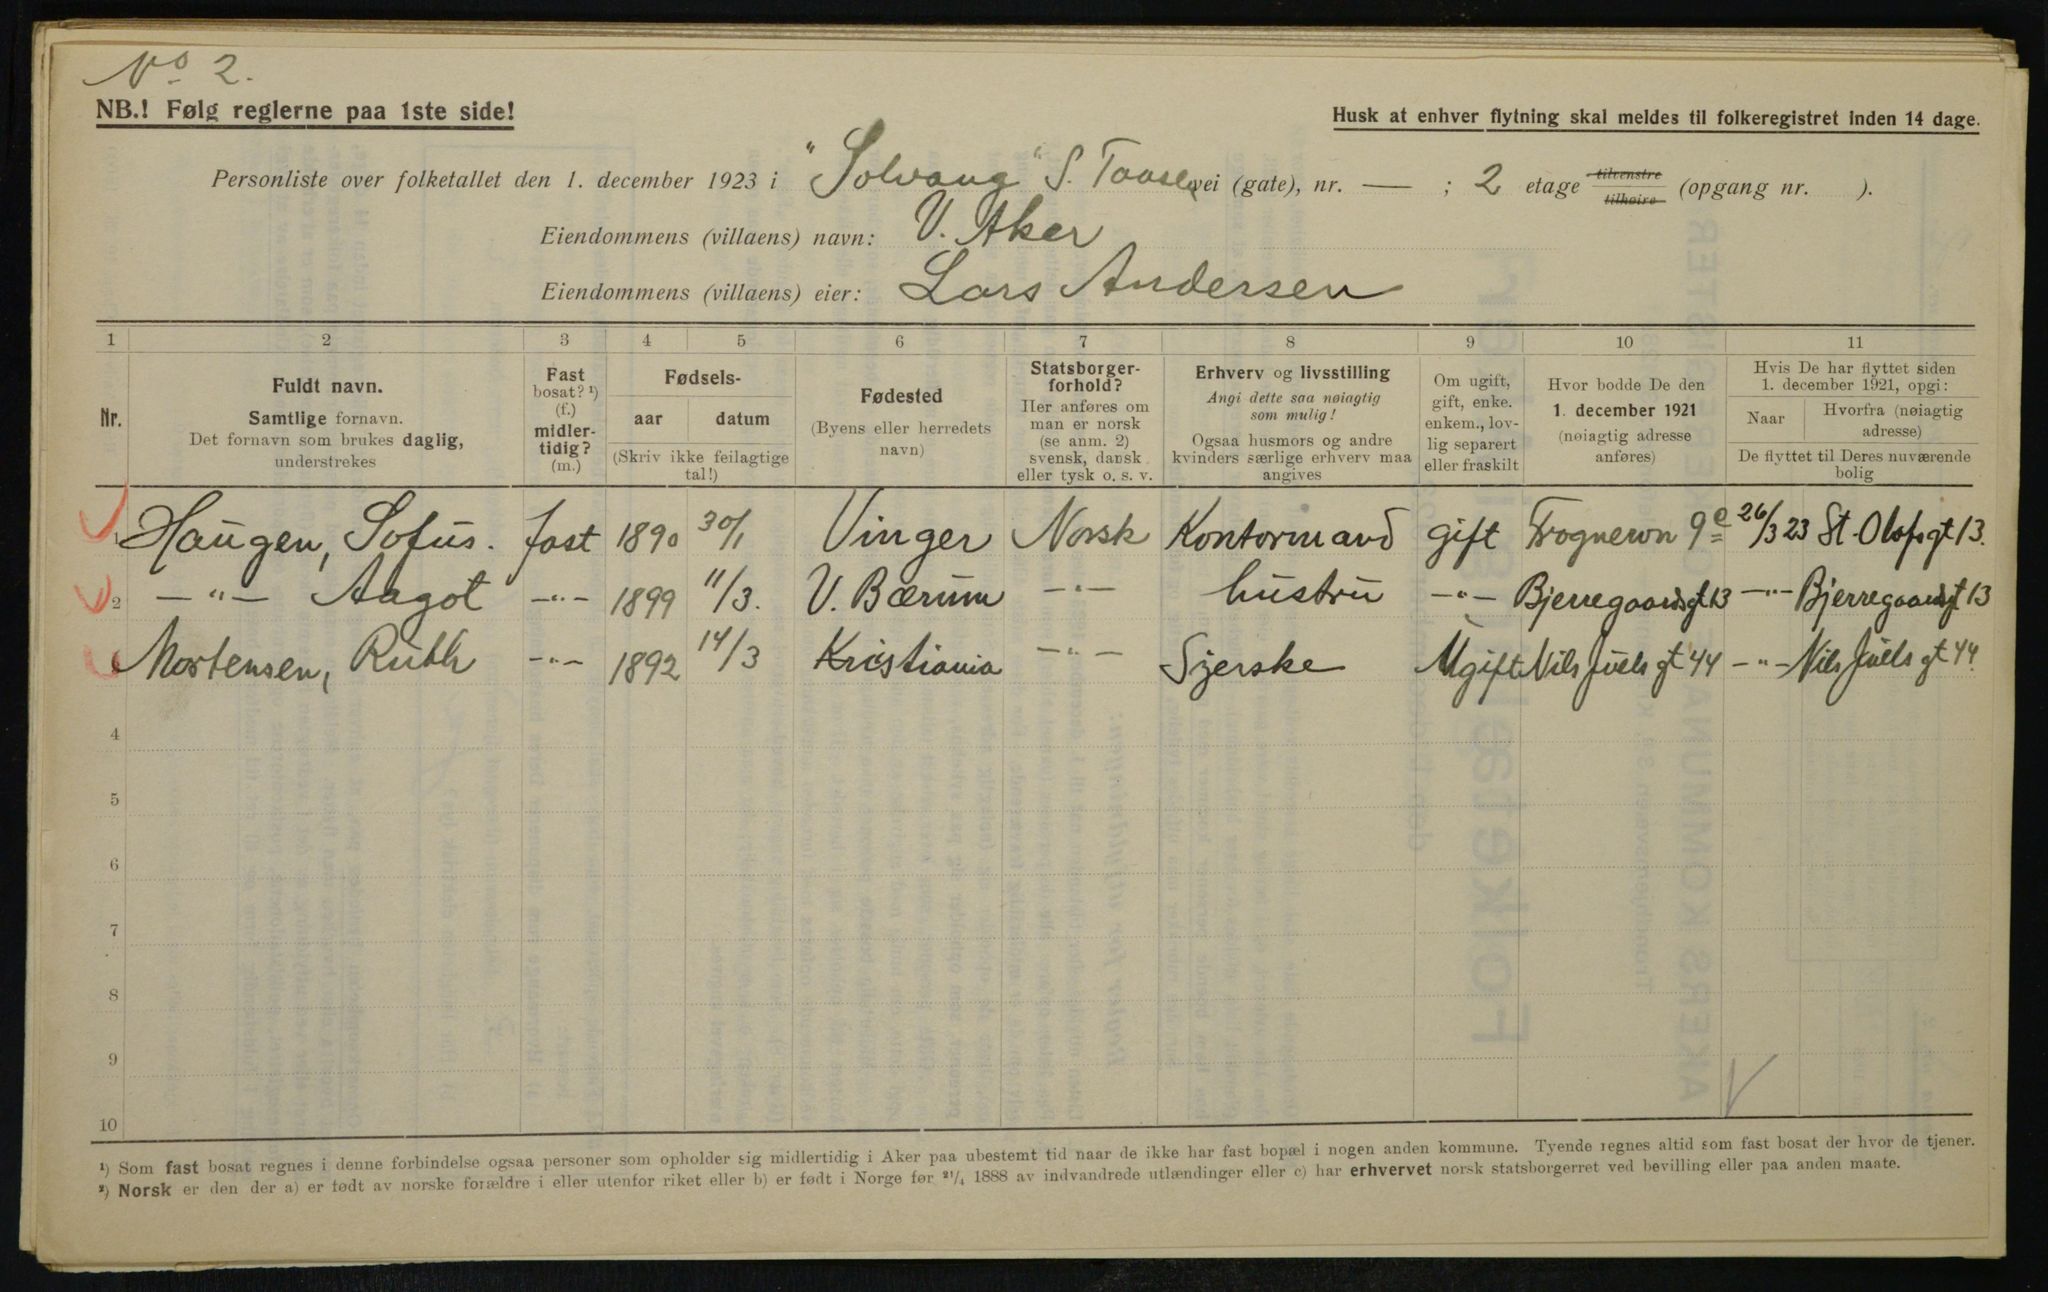 No 2.
NB.! Følg reglerne paa 1ste side!
Husk at enhver flytning skal meldes til folkeregistret inden 14 dage.
Personliste over folketallet den 1. december 1923 i "Solvang" S. Taasen vei (gate), nr. — ; 2 etage tilvenstre tilhøire (opgang nr. ).
Eiendommens (villaens) navn: V. Aker
Eiendommens (villaens) eier: Lars Andersen
1 2 3 4 5 6 7 8 9 10 11
Nr.
Fuldt navn.
Samtlige fornavn.
Det fornavn som brukes daglig,
understrekes
Fast
bosat? ¹)
(f.)
midler-
tidig?
(m.)
Fødsels-
aar datum
(Skriv ikke feilagtige
tal!)
Fødested
(Byens eller herredets
navn)
Statsborger-
forhold?
Her anføres om
man er norsk
(se anm. 2)
svensk, dansk
eller tysk o. s. v.
Erhverv og livsstilling
Angi dette saa nøiagtig
som mulig!
Ogsaa husmors og andre
kvinders særlige erhverv maa
angives
Om ugift,
gift, enke.
enkem., lov-
lig separert
eller fraskilt
Hvor bodde De den
1. december 1921
(nøiagtig adresse
anføres)
Hvis De har flyttet siden
1. december 1921, opgi:
Naar Hvorfra (nøiagtig
adresse)
De flyttet til Deres nuværende
bolig
1 Haugen, Sofus. fast 1890 30/1 Vinger Norsk Kontormand gift Frognervn 9e 26/3 23 St. Olafsgt 13.
2 —"— Aagot —"— 1899 11/3. V. Bærum —"— hustru —"— Bjerregaardsgt 13 —"— Bjerregaardsgt 13
Mortensen, Ruth —"— 1892 14/3 Kristiania —"— Syerske Ugift Nils Juels gt 44 —"— Nils Juels gt 44.
4
5
6
7
8
9
10
¹) Som fast bosat regnes i denne forbindelse ogsaa personer som opholder sig midlertidig i Aker paa ubestemt tid naar de ikke har fast bopæl i nogen anden kommune. Tyende regnes altid som fast bosat der hvor de tjener.
²) Norsk er den der a) er født av norske forældre i eller utenfor riket eller b) er født i Norge før ²¹/₄ 1888 av indvandrede utlændinger eller c) har erhvervet norsk statsborgerret ved bevilling eller paa anden maate.